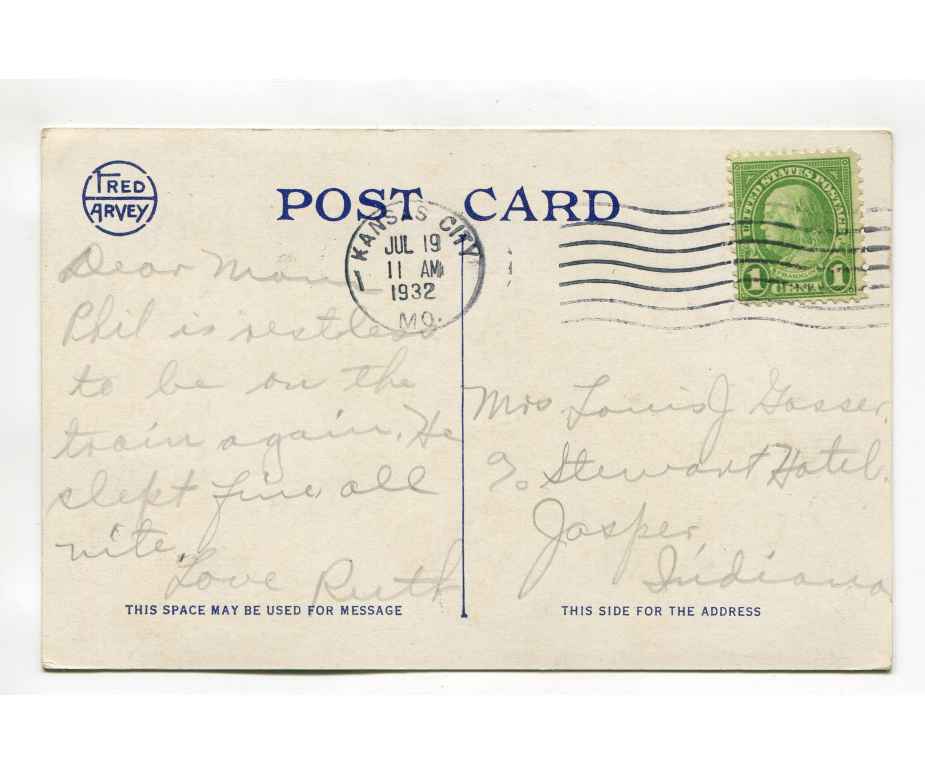 FRED
HARVEY
POST CARD
KANSAS CITY
JUL 19
11 AM
1932
MO.
1
UNITED STATES POSTAGE
FRANKLIN
1 CENT 1
Dear Mom
Phil is restless
to be on the
train again. He
slept fine all
nite.
Love Ruth
Mrs Louis J Gasser,
℅ Stewart Hotel.
Jasper,
Indiana
THIS SPACE MAY BE USED FOR MESSAGE
THIS SIDE FOR THE ADDRESS